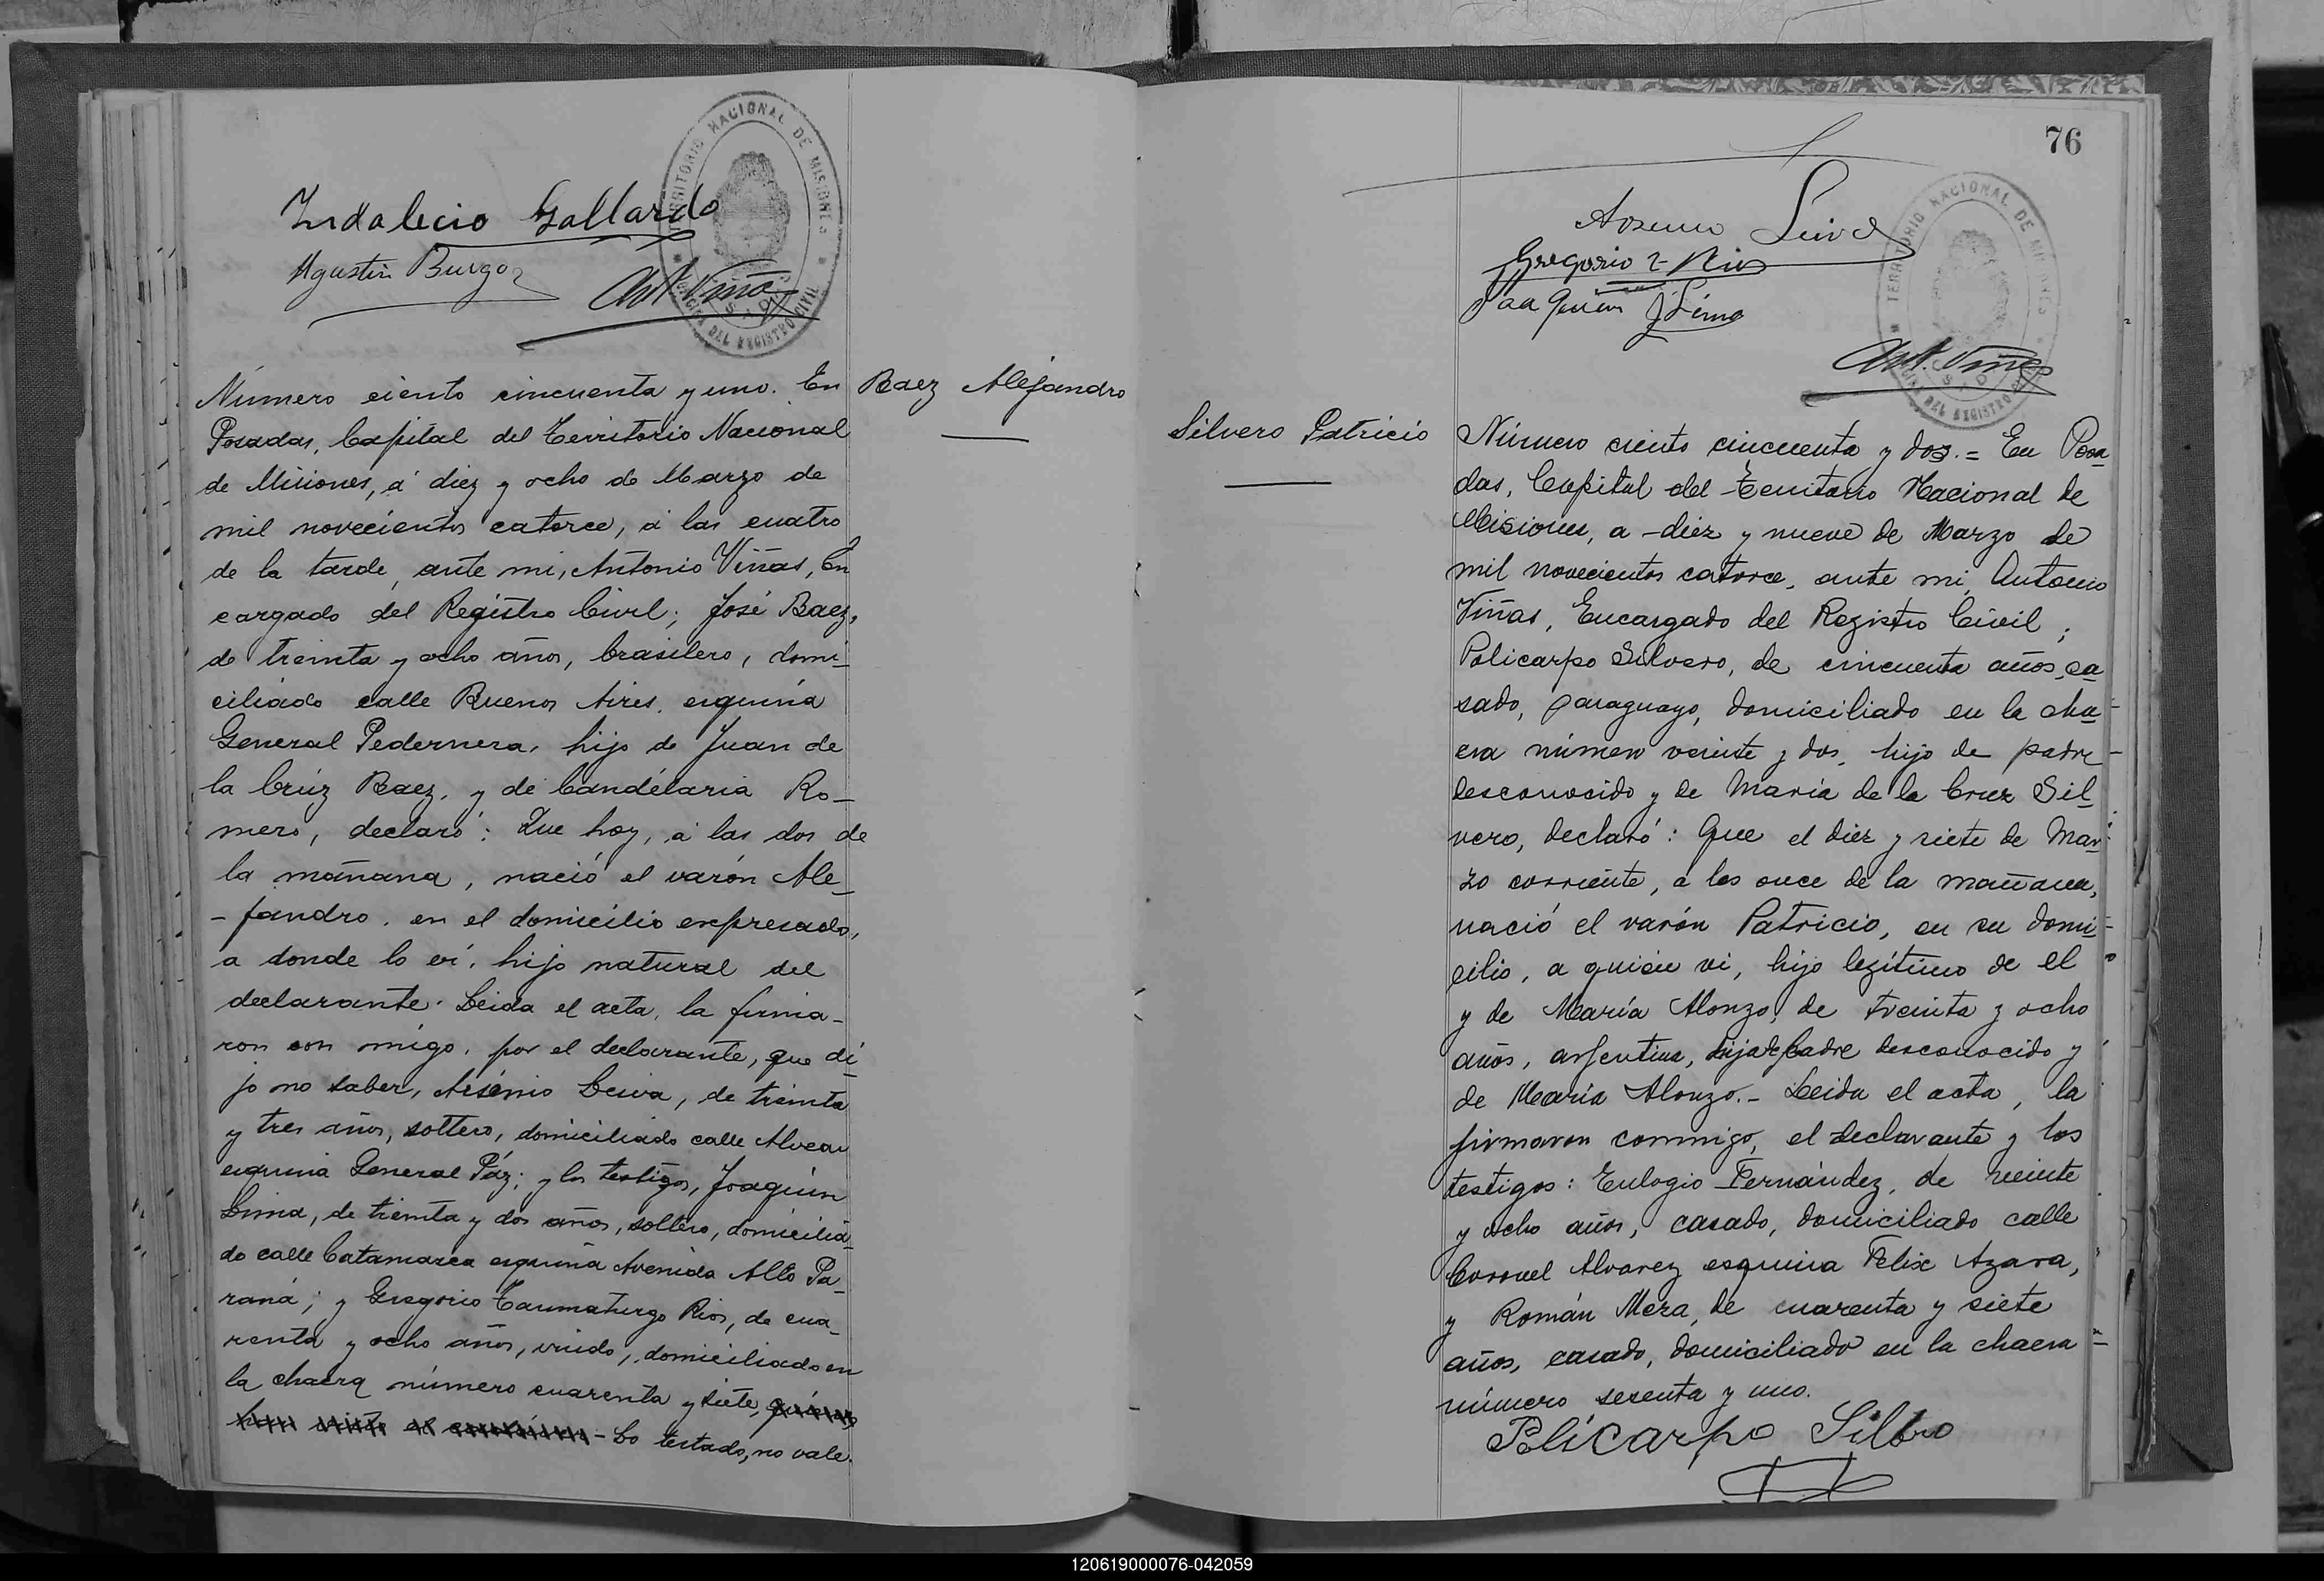 TERRITORIO NACIONAL DE MISIONES
OFICINA DEL REGISTRO CIVIL
Indalecio Gallardo
Agustin Burgos
Ant. Viñas
Número ciento cincuenta y uno. En
Posadas, Capital del Territorio Nacional
de Misiones, á diez y ocho de Marzo de
mil novecientos catorce, á las cuatro
de la tarde, ante mi, Antonio Viñas, En
cargado del Registro Civil; José Baez,
de treinta y ocho años, brasilero, domi-
ciliado calle Buenos Aires, esquina
General Pedernera, hijo de Juan de
la Crúz Baez, y de Candelaria Ro-
mero, declaró: Que hoy, á las dos de
la mañana, nació el varón Ale-
-jandro, en el domicilio expresado,
a donde lo ví, hijo natural del
declarante. Leida el acta, la firma-
ron con migo, por el declarante, que di-
jo no saber, Arsénio Leiva, de treinta
y tres años, soltero, domiciliado calle Alvear
esquina General Páz; y los testigos, Joaquín
Lima, de treinta y dos años, soltero, domicilia-
do calle Catamarca esquina Avenida Alto Pa-
raná; y Gregorio Taumaturgo Rios, de cua-
renta y ocho años, viudo, domiciliado en
la chacra número cuarenta y siete, quienes
- Lo testado, no vale.
Baez Alejandro
76
TERRITORIO NACIONAL DE MISIONES
OFICINA DEL REGISTRO CIVIL
Arsenio Leiva
Gregorio T. Rios
Joaquin J Lima
Ant. Viñas
Silvero Patricio
Número ciento cincuenta y dos.= En Posa
das, Capital del Territorio Nacional de
Misiones, a -diez y nueve de Marzo de
mil novecientos catorce, ante mi, Antonio
Viñas, Encargado del Registro Civil;
Policarpo Silvero, de cincuenta años, ca
sado, paraguayo, domiciliado en la cha-
cra número veinte y dos, hijo de padre
desconocido y de María de la Cruz Sil
vero, declaró: Que el diez y siete de Mar
zo corriente, a las once de la mañana,
nació el varón Patricio, en su domi-
cilio, a quien vi, hijo legítimo de el
y de María Alonzo, de treinta y ocho
años, argentina, hija de padre desconocido y
de María Alonzo.- Leida el acta, la
firmaron conmigo, el declarante y los
testigos: Eulogio Fernández, de veinte
y ocho años, casado, domiciliado calle
Coronel Alvarez esquina Felix Azara,
y Román Mera, de cuarenta y siete
años, casado, domiciliado en la chacra
número sesenta y uno.
Policarpo Silbro
120619000076-042059